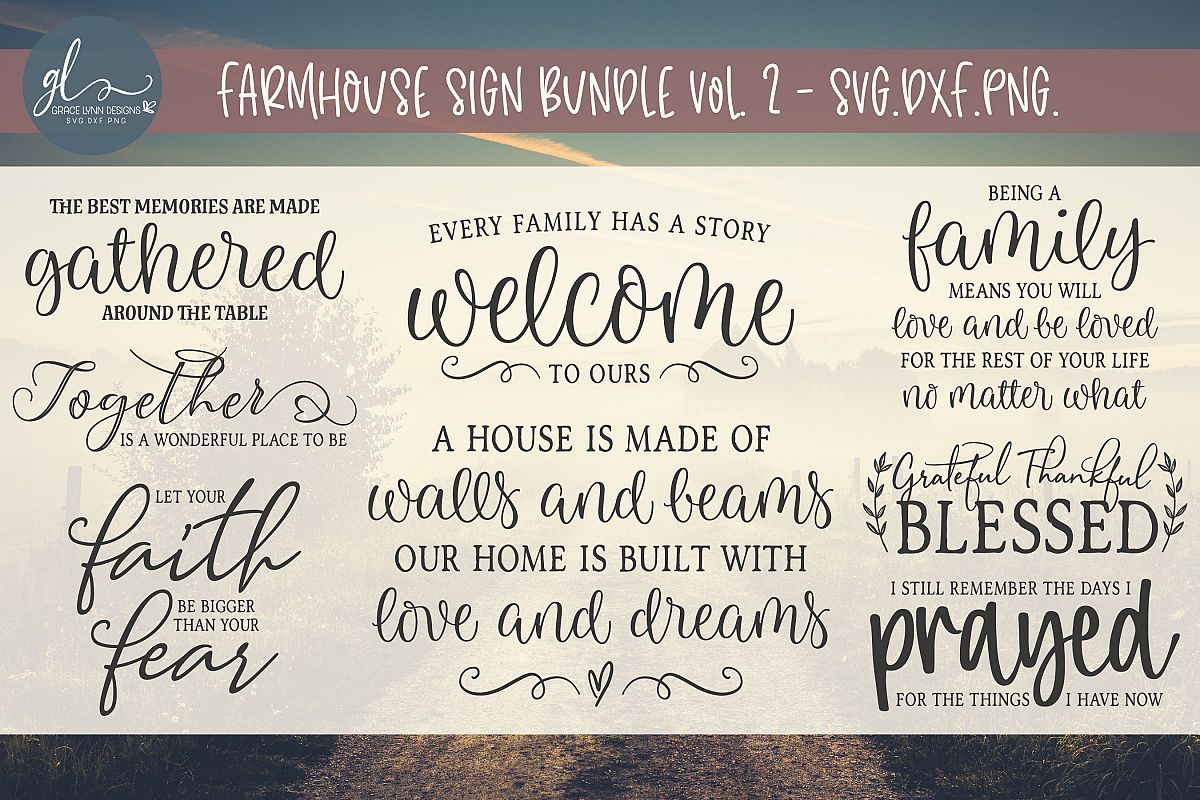 gl
GRACE LYNN DESIGNS
SVG.DXF.PNG
FARMHOUSE SIGN BUNDLE VOL. 2 - SVG.DXF.PNG.
THE BEST MEMORIES ARE MADE
gathered
AROUND THE TABLE
Together
IS A WONDERFUL PLACE TO BE
LET YOUR
faith
BE BIGGER
THAN YOUR
fear
EVERY FAMILY HAS A STORY
welcome
TO OURS
A HOUSE IS MADE OF
walls and beams
OUR HOME IS BUILT WITH
love and dreams
BEING A
family
MEANS YOU WILL
love and be loved
FOR THE REST OF YOUR LIFE
no matter what
Grateful Thankful
BLESSED
I STILL REMEMBER THE DAYS I
prayed
FOR THE THINGS I HAVE NOW